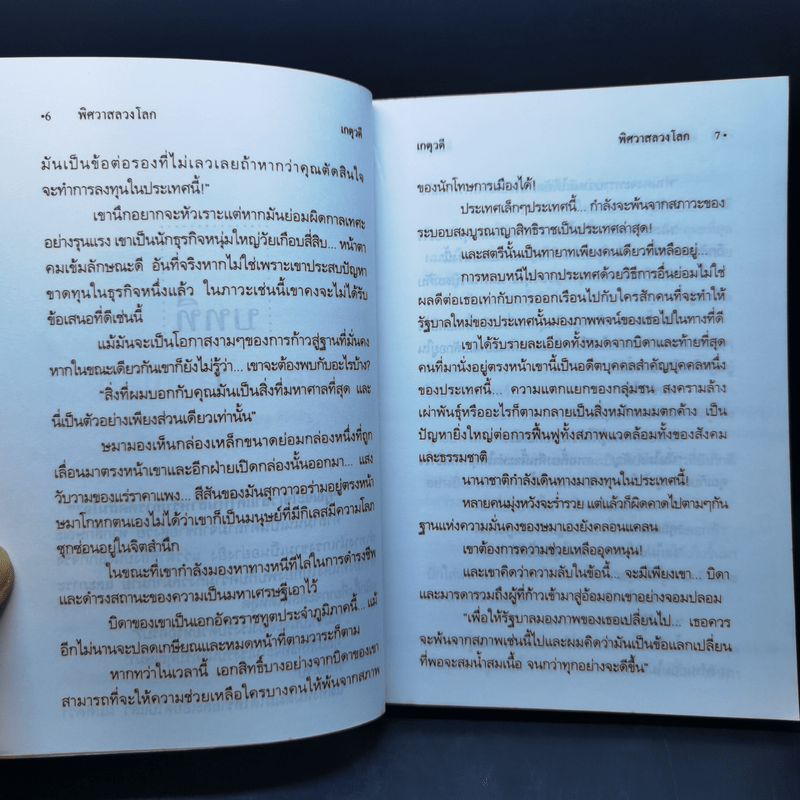 •6 พิศวาสลวงโลก
เกตุวดี
มันเป็นข้อต่อรองที่ไม่เลวเลยถ้าหากว่าคุณตัดสินใจ
จะทำการลงทุนในประเทศนี้!”
เขานึกอยากจะหัวเราะแต่หากมันย่อมผิดกาลเทศะ
อย่างรุนแรง เขาเป็นนักธุรกิจหนุ่มใหญ่วัยเกือบสี่สิบ... หน้าตา
คมเข้มลักษณะดี อันที่จริงหากไม่ใช่เพราะเขาประสบปัญหา
ขาดทุนในธุรกิจหนึ่งแล้ว ในภาวะเช่นนี้เขาคงจะไม่ได้รับ
ข้อเสนอที่ดีเช่นนี้
แม้มันจะเป็นโอกาสงามๆของการก้าวสู่ฐานที่มั่นคง
หากในขณะเดียวกันเขาก็ยังไม่รู้ว่า... เขาจะต้องพบกับอะไรบ้าง?
“สิ่งที่ผมบอกกับคุณมันเป็นสิ่งที่มหาศาลที่สุด และ
นี่เป็นตัวอย่างเพียงส่วนเดียวเท่านั้น”
ษมามองเห็นกล่องเหล็กขนาดย่อมกล่องหนึ่งที่ถูก
เลื่อนมาตรงหน้าเขาและอีกฝ่ายเปิดกล่องนั้นออกมา... แสง
วับวามของแร่ราคาแพง... สีสันของมันสุกวาวอร่ามอยู่ตรงหน้า
ษมาโกหกตนเองไม่ได้ว่าเขาก็เป็นมนุษย์ที่มีกิเลสมีความโลภ
ซุกซ่อนอยู่ในจิตสำนึก
ในขณะที่เขากำลังมองหาทางหนีทีไล่ในการดำรงชีพ
และดำรงสถานะของความเป็นมหาเศรษฐีเอาไว้
บิดาของเขาเป็นเอกอัครราชทูตประจำภูมิภาคนี้... แม้
อีกไม่นานจะปลดเกษียณและหมดหน้าที่ตามวาระก็ตาม
หากทว่าในเวลานี้ เอกสิทธิ์บางอย่างจากบิดาของเขา
สามารถที่จะให้ความช่วยเหลือใครบางคนให้พ้นจากสภาพ
เกตุวดี พิศวาสลวงโลก 7•
ของนักโทษการเมืองได้!
ประเทศเล็กๆประเทศนี้... กำลังจะพ้นจากสภาวะของ
ระบอบสมบูรณาญาสิทธิราชเป็นประเทศล่าสุด!
และสตรีนั้นเป็นทายาทเพียงคนเดียวที่เหลืออยู่
การหลบหนีไปจากประเทศด้วยวิธีการอื่นย่อมไม่ใช่
ผลดีต่อเธอเท่ากับการออกเรือนไปกับใครสักคนที่จะทำให้
รัฐบาลใหม่ของประเทศนั้นมองภาพพจน์ของเธอไปในทางที่ดี
เขาได้รับรายละเอียดทั้งหมดจากบิดาและท้ายที่สุด
คนที่มานั่งอยู่ตรงหน้าเขานี้เป็นอดีตบุคคลสำคัญบุคคลหนึ่ง
ของประเทศนี้... ความแตกแยกของกลุ่มชน สงครามล้าง
เผ่าพันธุ์หรืออะไรก็ตามกลายเป็นสิ่งหมักหมมตกค้าง เป็น
ปัญหายิ่งใหญ่ต่อการฟื้นฟูทั้งสภาพแวดล้อมทั้งของสังคม
และธรรมชาติ
นานาชาติกำลังเดินทางมาลงทุนในประเทศนี้!
หลายคนมุ่งหวังจะร่ำรวย แต่แล้วก็ผิดคาดไปตามๆกัน
ฐานแห่งความมั่นคงของษมาเองยังคลอนแคลน
เขาต้องการความช่วยเหลืออุดหนุน!
และเขาคิดว่าความลับในข้อนี้... จะมีเพียงเขา... บิดา
และมารดารวมถึงผู้ที่ก้าวเข้ามาสู่อ้อมอกเขาอย่างจอมปลอม
“เพื่อให้รัฐบาลมองภาพของเธอเปลี่ยนไป... เธอควร
จะพ้นจากสภาพเช่นนี้ไปและผมคิดว่ามันเป็นข้อแลกเปลี่ยน
ที่พอจะสมน้ำสมเนื้อ จนกว่าทุกอย่างจะดีขึ้น”